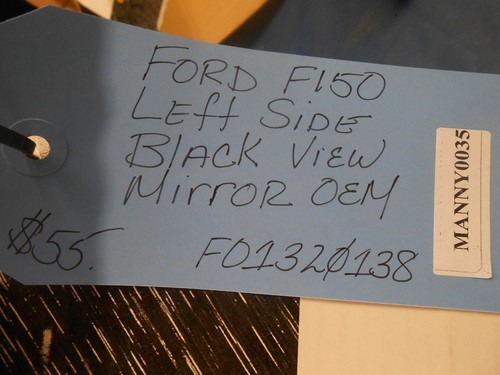 FORD F150
LEft SiDE
BlACK ViEW
MirrOR OEM
$55.
FO1320138
MANNY0035